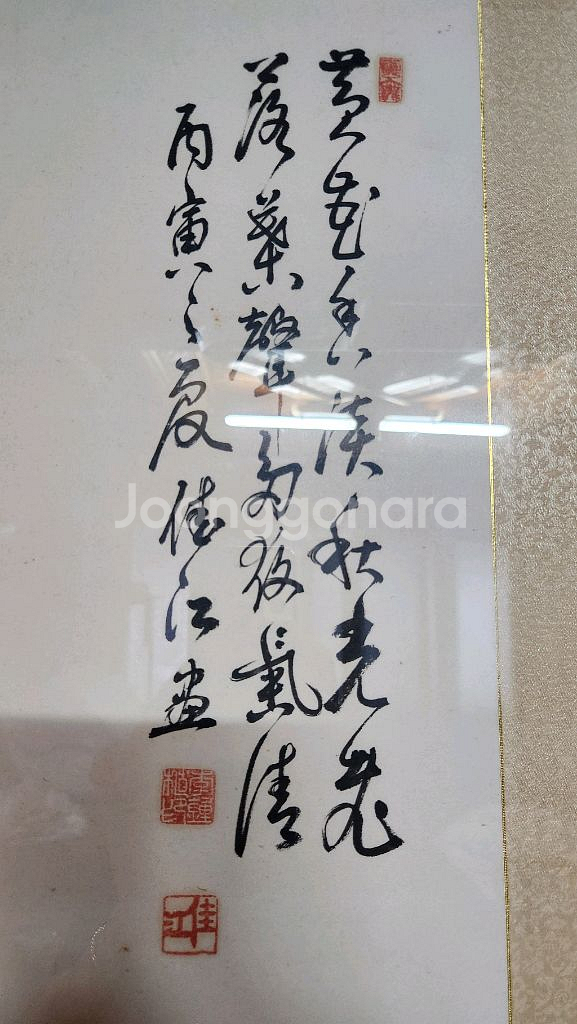 黃花香淡秋光老
落葉聲多夜氣清
丙寅之夏佳江畫
佳江
Joonggonara